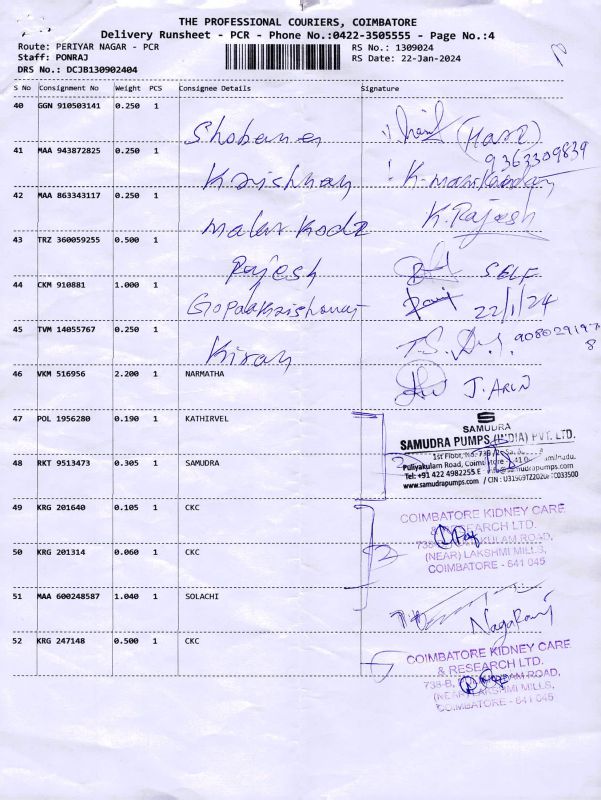 THE PROFESSIONAL COURIERS, COIMBATORE
Delivery Runsheet - PCR - Phone No.:0422-3505555 - Page No.:4
Route: PERIYAR NAGAR - PCR RS No.: 1309024
Staff: PONRAJ RS Date: 22-Jan-2024
DRS No.: DCJB130902404
S No Consignment No Weight PCS Consignee Details Signature
40 GGN 910503141 0.250 1 Shobana (Hari)
9363309839
41 MAA 943872825 0.250 1 Krishnan K. Manikandan
42 MAA 863343117 0.250 1 Malar Kodi K. Rajesh
43 TRZ 360059255 0.500 1 Rajesh SELF
44 CKM 910881 1.000 1 Gopalakrishanan 22/1/24
45 TVM 14055767 0.250 1 Kiran
46 VKM 516956 2.200 1 NARMATHA J. ARUN
47 POL 1956280 0.190 1 KATHIRVEL
SAMUDRA
SAMUDRA PUMPS (INDIA) PVT. LTD.
48 RKT 9513473 0.305 1 SAMUDRA
Puliyakulam Road,
Tel: +91 422 4982255
www.samudrapumps.com
49 KRG 201640 0.105 1 CKC
COIMBATORE KIDNEY CARE
& RESEARCH LTD.
(NEAR) LAKSHMI MILLS,
COIMBATORE - 641 045
50 KRG 201314 0.060 1 CKC
51 MAA 600248587 1.040 1 SOLACHI Nagaraj
52 KRG 247148 0.500 1 CKC
COIMBATORE KIDNEY CARE
& RESEARCH LTD.
(NEAR) LAKSHMI MILLS,
COIMBATORE - 641 045